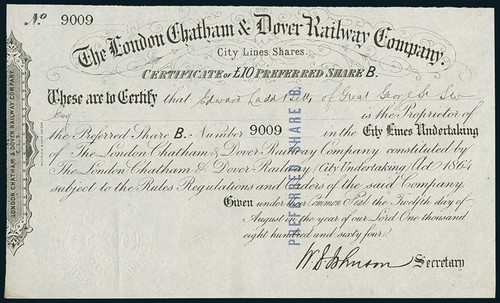 No 9009
The London Chatham & Dover Railway Company.
City Lines Shares.
Certificate of £10 Preferred Share B.
These are to Certify that Edward Ladd Betts of Great George St W
Esq is the Proprietor of
the Preferred Share B. Number 9009 in the City Lines Undertaking
of The London Chatham & Dover Railway Company constituted by
The London Chatham & Dover Railway (City Undertaking) Act 1864
subject to the Rules Regulations and Orders of the said Company.
Given under their Common Seal the Twelfth day of
August in the year of our Lord One thousand
eight hundred and sixty four.
W. D. Johnson Secretary
PREFERRED SHARE B.
LONDON CHATHAM & DOVER RAILWAY COMPANY.